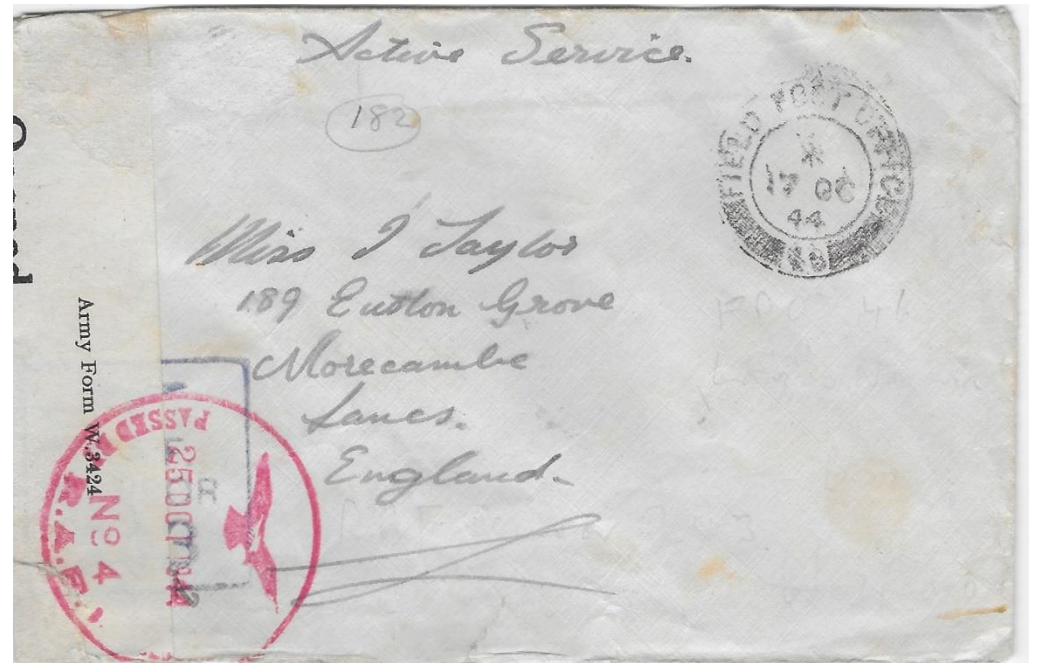 Active Service.
182
FIELD POST OFFICE
17 OC
44
Miss I Taylor
189 Euston Grove
Morecambe
Lancs.
England.
Opened
Army Form W.3424
PASSED
25 OCT
No 4
R.A.F.